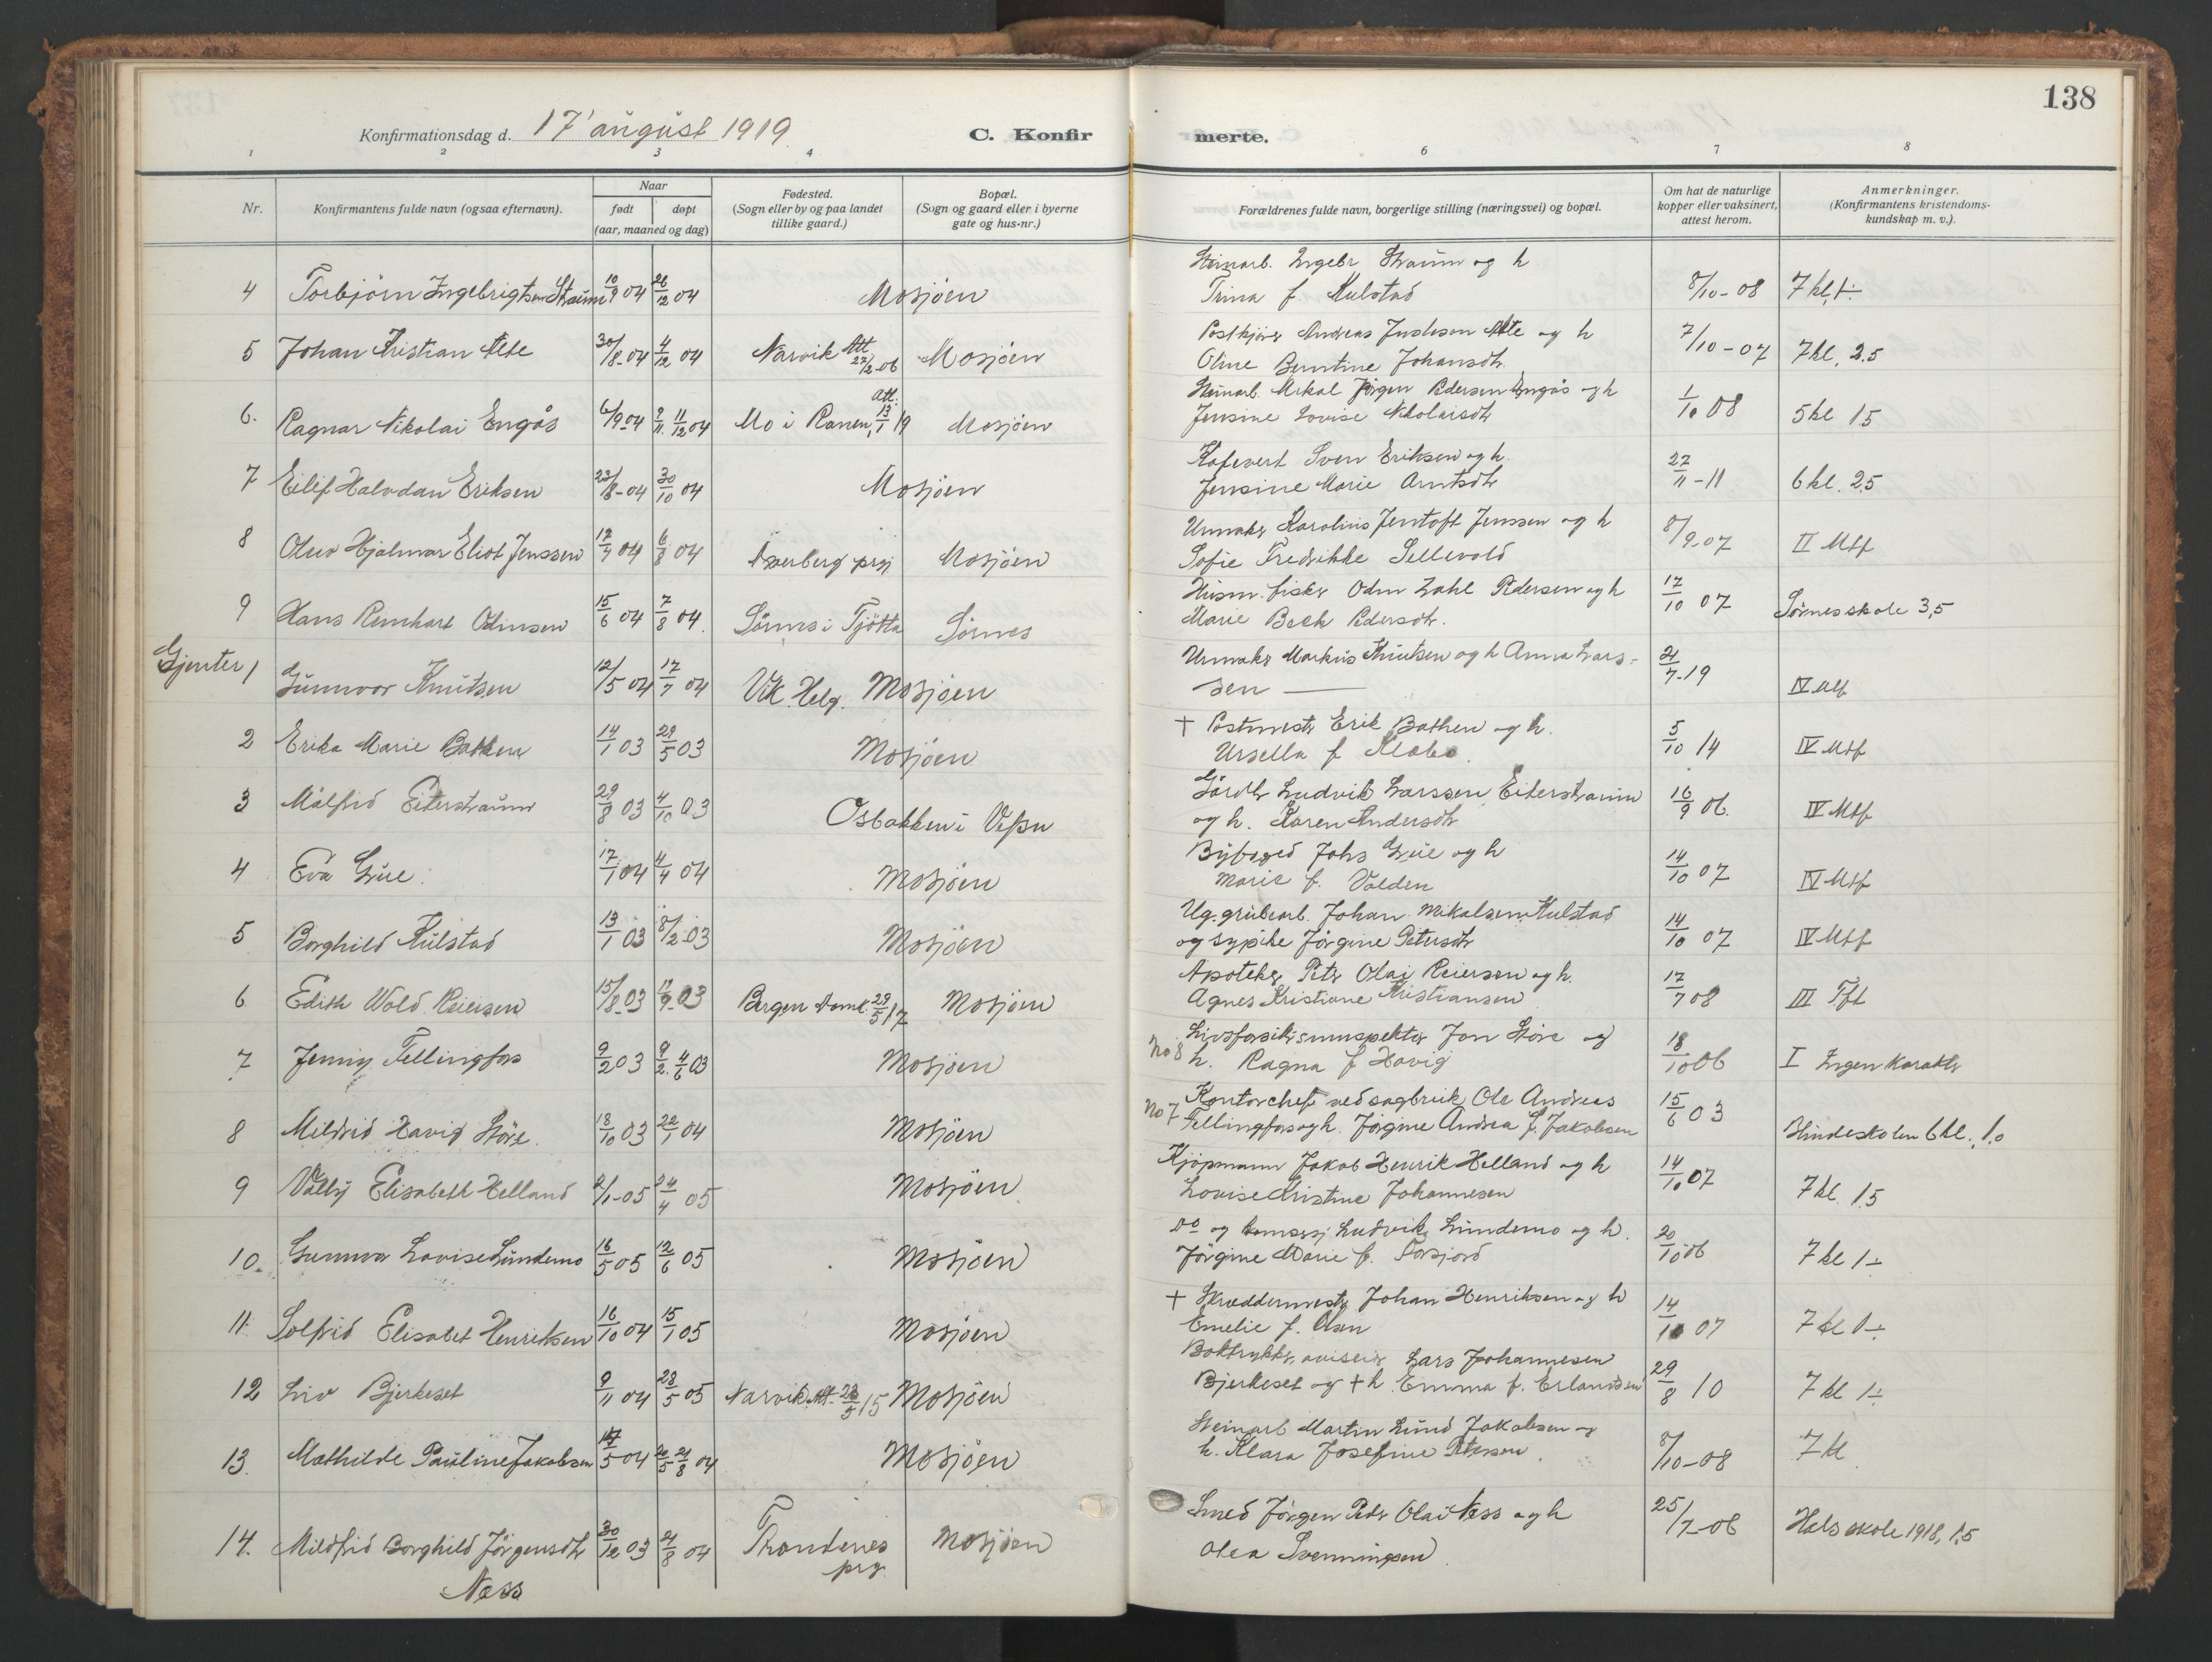 138
Konfirmationsdag d. 17' august 1919.
C. Konfir
merte.
1 2 3 4 6 7 8
Nr.
Konfirmantens fulde navn (ogsaa efternavn).
Naar
født døpt
(aar, maaned og dag)
Fødested.
(Sogn eller by og paa landet
tillike gaard.)
Bopæl.
(Sogn og gaard eller i byerne
gate og hus-nr.)
Forældrenes fulde navn, borgerlige stilling (næringsvei) og bopæl.
Om hat de naturlige
kopper eller vaksinert,
attest herom.
Anmerkninger.
(Konfirmantens kristendoms-
kundskap m. v.).
Steinarb. Ingebr Straum og h
4 Torbjörn Ingebrigtsen Straum 10/9 04 26/12 04 Mosjöen Trina f. Kulstad 8/10-08 7 kl, 1÷
Postkjörer Andreas Justesen Alte og h
5 Johan Kristian Alte 30/8-04 4/12 04 Narvik Att 22/2-06 Mosjöen Oline Berntine Johansdtr 7/10-07 7 kl. 2.5
Steinarb. Mikal Jörgen Pedersen Engås og h
6. Ragnar Nikolai Engås 6/9 04 9/11. 11/12 04 Mo i Ranen, Att. 13/1 19 Mosjöen Jensine Lovise Nikolaisdtr 1/10 08 5 kl 1.5
Kafevert Sven Eriksen og h.
7 Eilif Halvdan Eriksen 23/8-04 30/10 04 Mosjöen Jensine Marie Arntsdtr 27/11-11 6 kl. 2.5
Urmaker Karolius Jentoft Jenssen og h
8 Oluv Hjalmar Eliot Jenssen 12/7 04 6/8 04 prgj Mosjöen Sofie Fredrikke Sellevold 8/9-07 II Mtf
Husm. fisker Odin Zahl Pedersen og h
9 Hans Reinhart Odinsen 15/6 04 7/8 04. Sörnes i Tjötta Sörnes Marie Beck Pedersdtr. 17/10 07 Sörnes skole 3,5
Urmaker Markus Knutsen og h Anna Lars-
Gjenter 1 Gunnvor Knutsen 12/5 04 17/7 04 Vik. Helg. Mosjöen sen 21/7-19 IV Mtf
† Postmester Erik Bathen og h.
2 Erika Marie Bathen 14/1 03 29/5 03 Mosjöen Ursella f 5/10 14 IV Mtf
Gårdbr Ludvik Larssen Eiterstraum
3 Målfrid Eiterstraum 29/8 03 4/10 03 Osbakken i Vefsn og h. Karen Andersdtr 16/9 06. IV Mtf
Johs Lue og h
4 Eva Lue. 17/1 04 4/4 04 Mosjöen Marie f. Valden 14/10 07 IV Mtf
Ug. grubearb. Johan Mikalsen Kulstad
5 Borghild Kulstad 13/1 03 8/2 03 Mosjöen og sypike Jörgine Petersdtr 14/10 07 IV Mtf
Apoteker Peter Olai Reiersen og h.
6 Edith Wold Reiersen 15/8-03 13/9-03 Bergen Domk. 29/5 17 Mosjöen Agnes Kristiane Kristiansen 17/7 08 III Tft
No 8 Livsforsikr.sinnspektör Jon Störe og
7 Jenny Fellingfors 9/2 03 9/2. 4/6 03 Mosjöen h. Ragna f Havig 18/10 06 I Ingen karakter
No 7 Kontorchef ved sagbruk Ole Andreas
8 Mildrid Havig Störe. 18/10 03 22/1 04 Mosjöen Fellingfors og h. Jörgine Andrea f. Jakobsen 15/6 03 6 kl. 1.0
Kjöpmann Jakob Henrik Helland og h
9 Vally Elisabeth Helland 2/1-05 24/4 05 Mosjöen Lovise Kristine Johannesen 14/10 07 7 kl. 1.5
Do og Ludvik Lundemo og h.
10. Gunnvor Lovise Lundemo 16/5 05 12/6 05 Mosjöen Jörgine Marie f. Forsjord 20/10 06 7 kl 1÷
† Skreddermester Johan Henriksen og h
11. Solfrid Elisabet Henriksen 16/10 04 15/1 05 Mosjöen Emelie f. Olsen 14/10 07 7 kl 1÷
Boktrykker, Lars Johannesen
12 Liv Bjerkeset 9/11 04 28/5 05 Narvik Att. 28/5 15 Mosjöen Bjerkeset og † h. Emma f. Erlandsen 29/8 10 7 kl 1÷
Steinarb Martin Lund Jakobsen og
13. Mathilde Pauline Jakobsen 17/5 04 20/5 21/8 04 Mosjöen h. Klara Josefine Petersen. 8/10-08 7 kl
Smed Jörgen Peder Olai Ness og h
14. Mildfrid Borghild Jörgensdtr 30/12 03 21/8 04 Trondenes Mosjöen Olea Svenningsen 25/7-06 Hals skole 1918, 1.5
Næss prg.